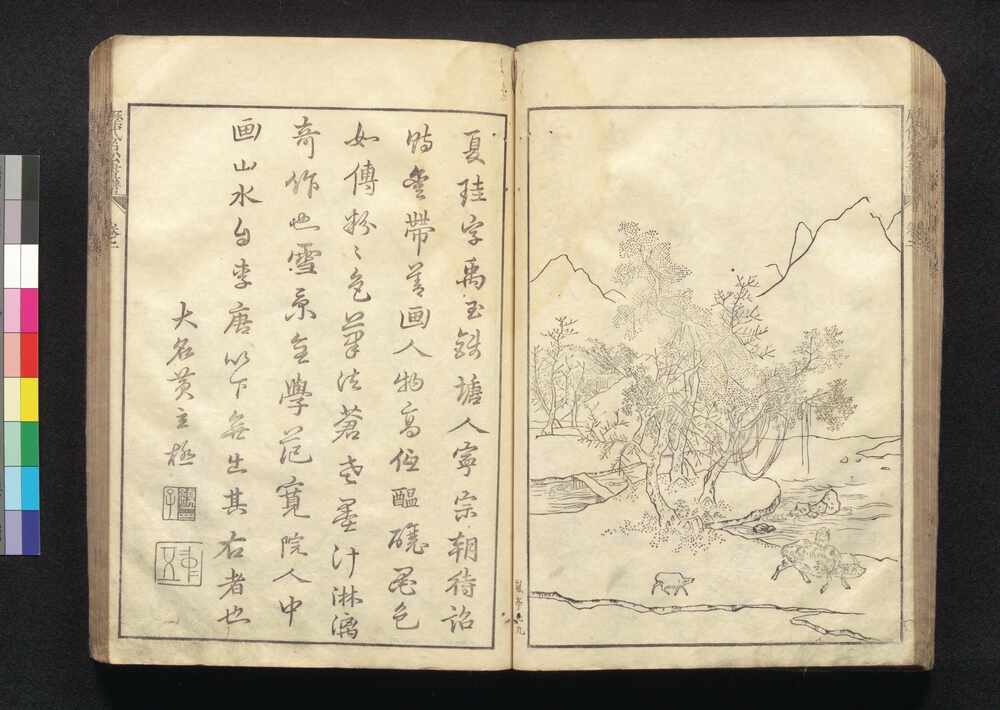 夏珪字禹玉錢塘人寧宗朝待詔
賜金帶善画人物高低醞釀墨色
如傅粉之色筆法蒼老墨汁淋漓
奇作也雪景全學范寬院人中
画山水自李唐以下無出其右者也
大名黃立極